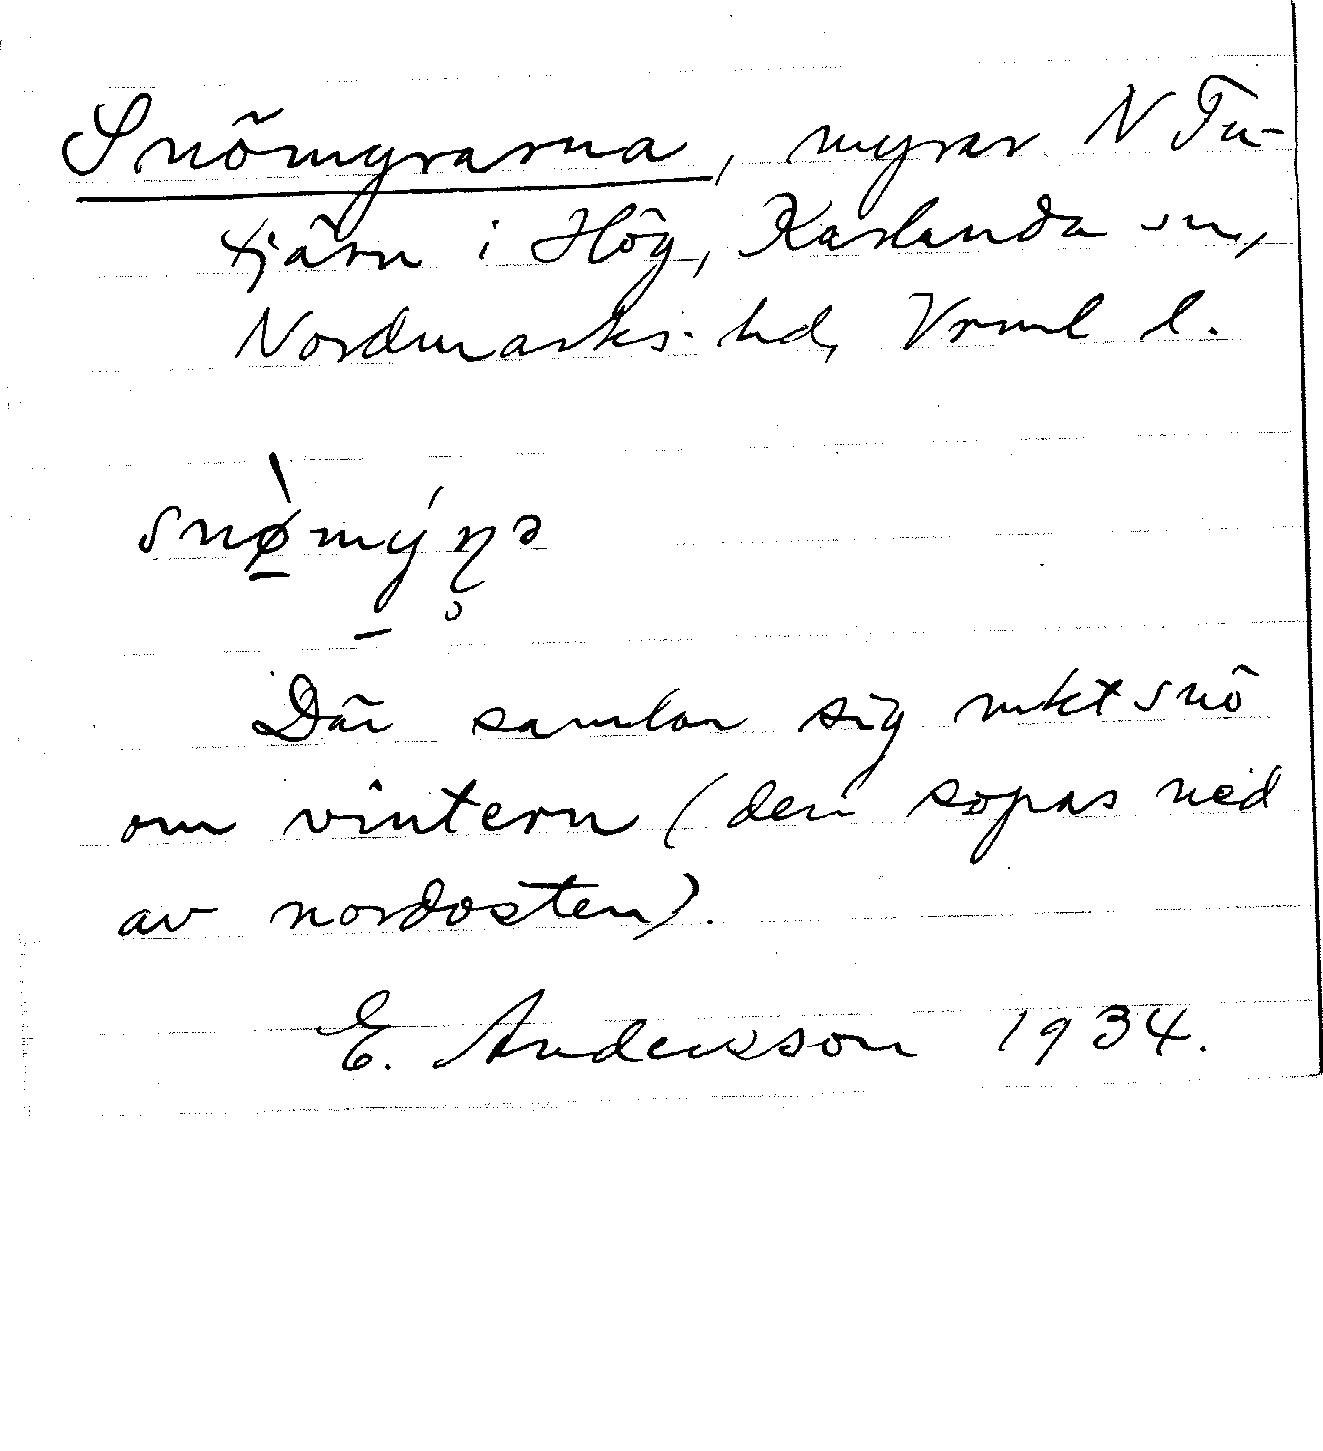 Snömyrarna, myrar N Tu-
tjärn i Hög, Karlanda sn,
Nordmarks hd, Vrml l.
snø̠̀mý̠ɳ̥ə
Där samlar sig mkt snö
om vintern (den sopas ned
av nordosten).
E. Andersson 1934.